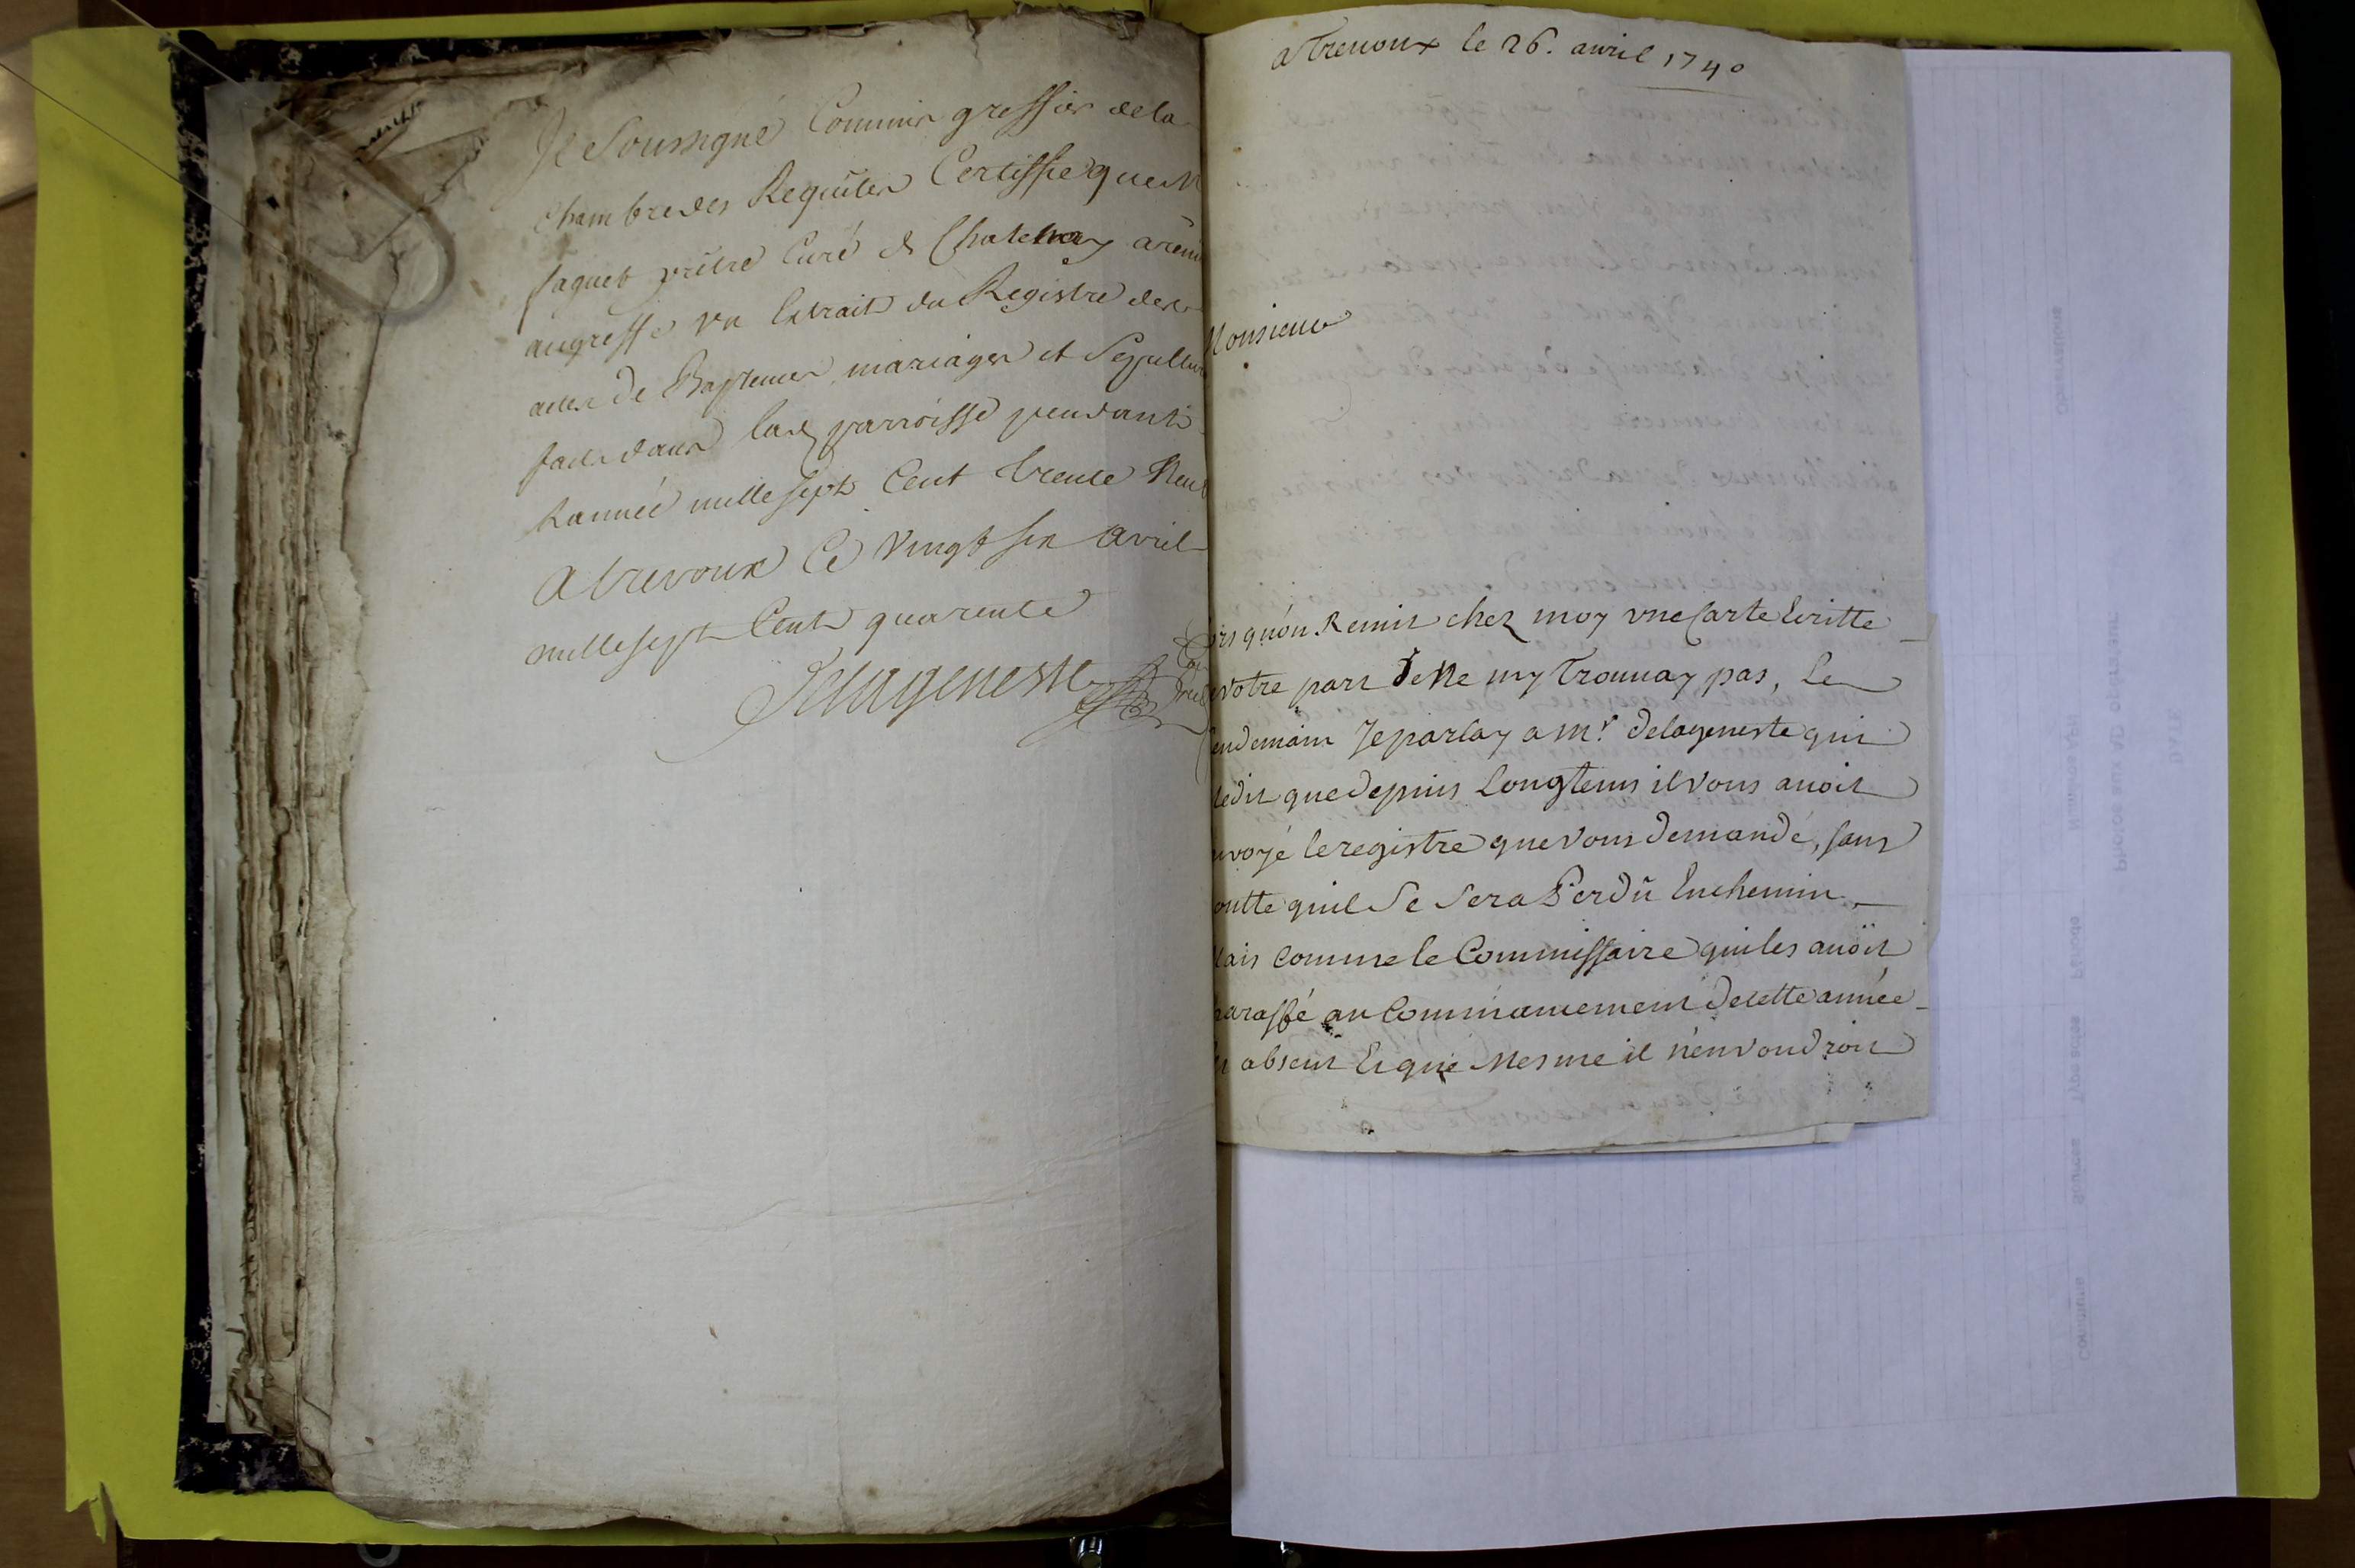 Je Soussigné Commis greffier dela
Chambre des Requêtes Certiffie que M
Jaquet prêtre Curé de Chatenay a remi
au greffe un Extrait du Registre des
actes de Baptemes mariages et Sepultur
faits dans lad parroisse pendant
Lannée mille sept Cent trente Neuf
a trevoux Ce vingt six avril
mille sept Cent quarente
Delageneste
a Trevoux le 26. avril 1740
Monsieur
ors qu'on Remit chez moy une Carte Ecritte
votre part Je Ne my Trouvay pas, Le
endemain Je parlay a mr. delageneste qui
edit que depuis Longtems il vous avoit
nvoyé le registre que vous demandé, sans
outte quil Se Sera Perdû En chemin,
ais comme le Commissaire qui les avoit
araffé au Commancement de cette année
absent Et que Mesme il n'en voudroit
Observations
Période
Type actes
Commune